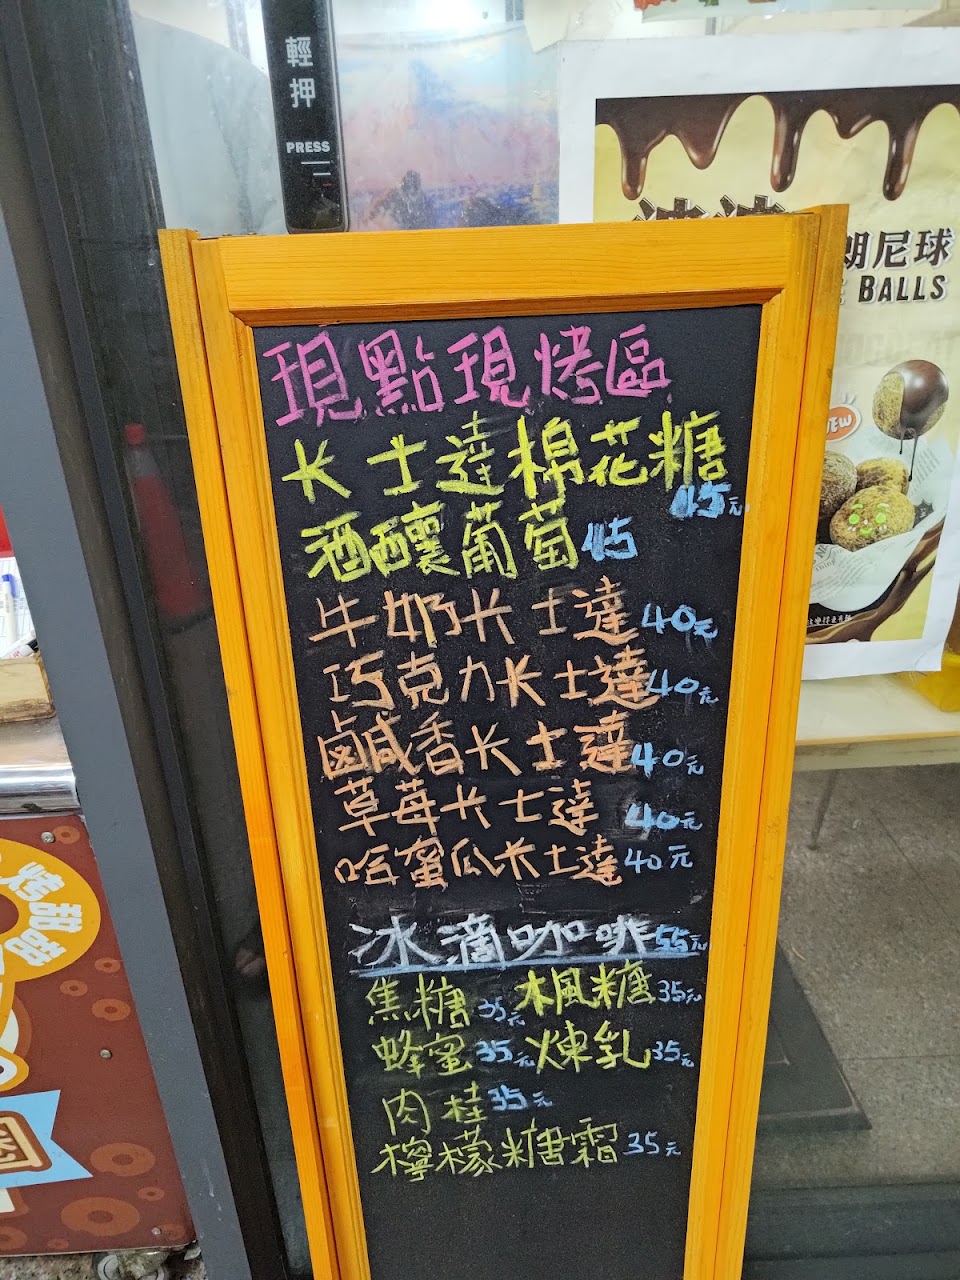 輕押
PRESS
朗尼球
BALLS
NEW
現點現烤區
卡士達棉花糖
45元
酒釀葡萄45
牛奶卡士達40元
巧克力卡士達40元
鹹香卡士達40元
草莓卡士達 40元
哈蜜瓜卡士達40元
冰滴咖啡55元
焦糖35元 楓糖35元
蜂蜜35元 煉乳35元
肉桂35元
檸檬糖霜35元
甜甜